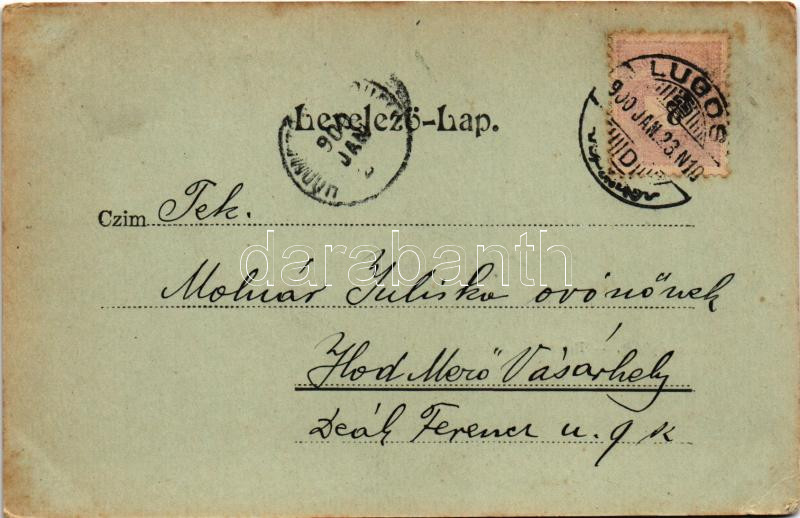 LUGOS
900 JAN. 23. N10
D
900
JAN
Levelező-Lap.
Czim Tek.
darabanth
Molnár Juliska ovónőnek
Hod Mező Vásárhely
Deák Ferencz u. 9 k